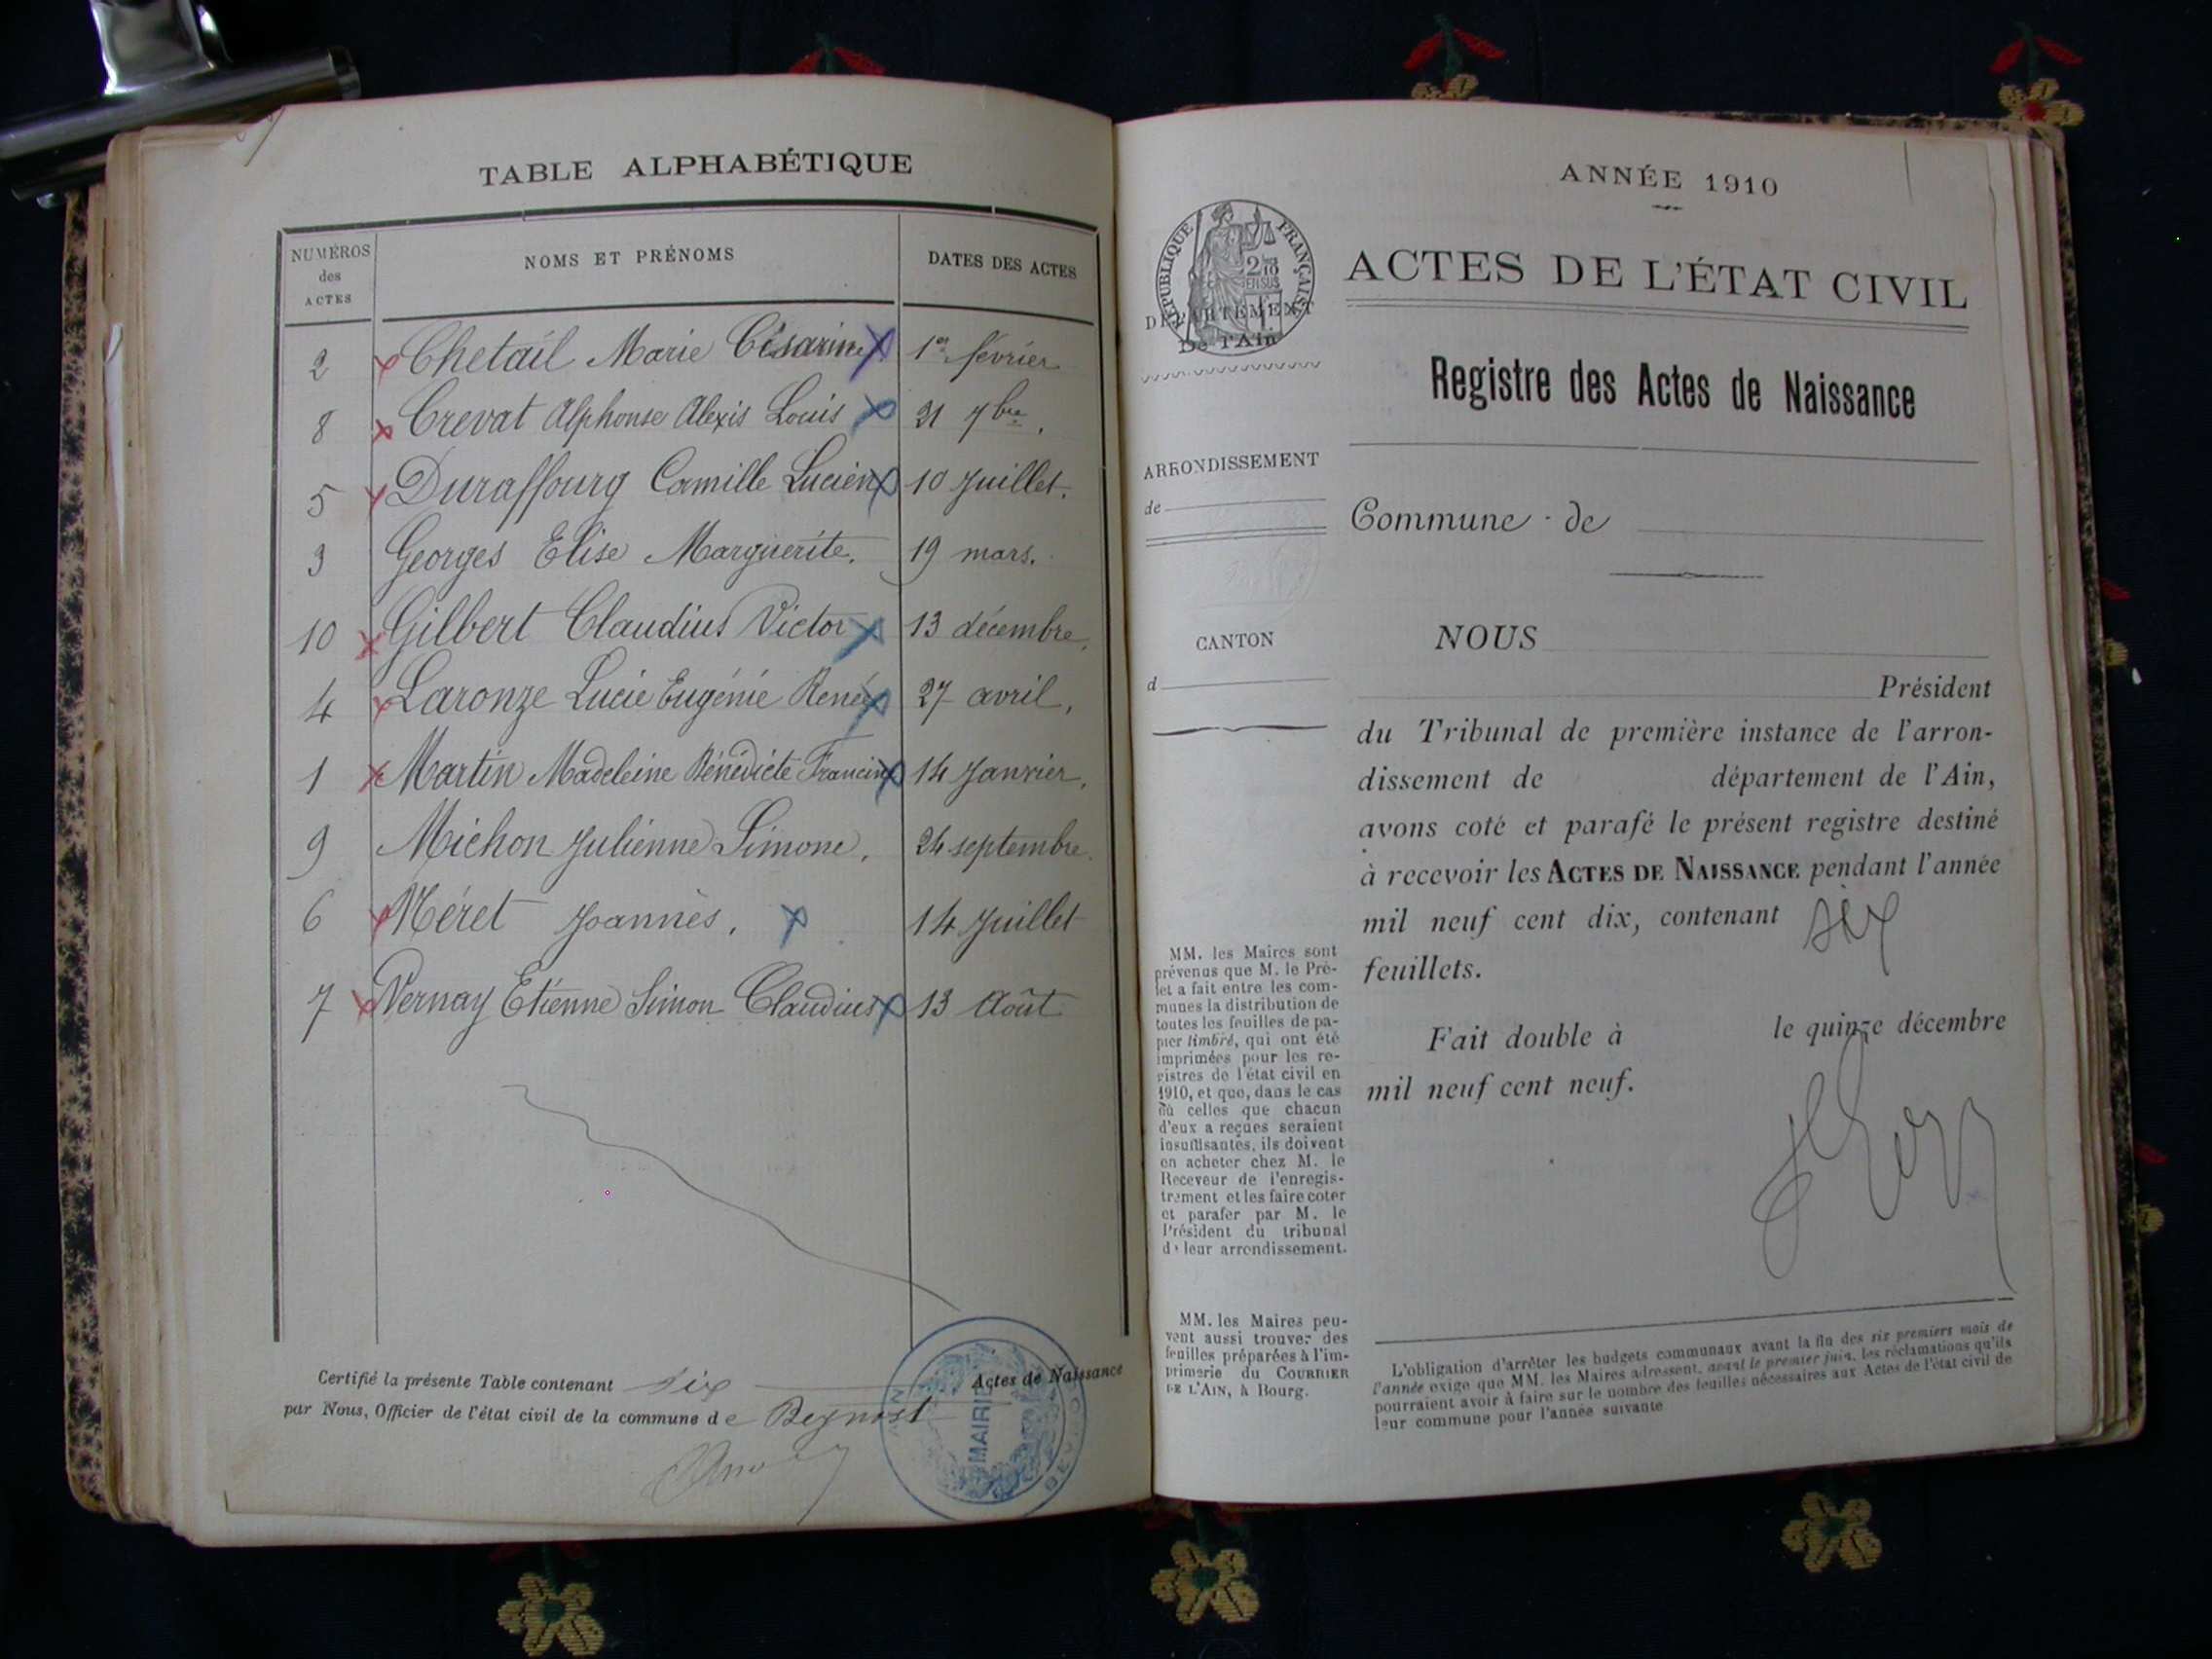 TABLE ALPHABÉTIQUE
NUMÉROS
des
ACTES
NOMS ET PRÉNOMS
DATES DES ACTES
2 Chetail Marie Césarine 1er février
8 Crevat Alphonse Alexis Louis 21 7bre.
5 Duraffourg Camille Lucien 10 Juillet.
3 Georges Elise Marguerite. 19 mars.
10 Gilbert Claudius Victor 13 décembre.
4 Laronze Lucie Eugénie Renée 27 avril.
1 Martin Madeleine Bénédicte Francine 14 Janvier.
9 Michon Julienne Simone. 24 septembre.
6 Néret Joannès. 14 Juillet
7 Vernay Etienne Simon Claudius 13 Août
Certifié la présente Table contenant dix Actes de Naissance
par Nous, Officier de l'état civil de la commune de Beynost
MAIRIE
AIN
ANNÉE 1910
RÉPUBLIQUE FRANÇAISE
DÉPARTEMENT
De l'Ain
ACTES DE L'ÉTAT CIVIL
Registre des Actes de Naissance
ARRONDISSEMENT
de
Commune de
CANTON
d
NOUS
Président
du Tribunal de première instance de l'arron-
dissement de département de l'Ain,
avons coté et parafé le présent registre destiné
à recevoir les ACTES DE NAISSANCE pendant l'année
mil neuf cent dix, contenant six
feuillets.
Fait double à le quinze décembre
mil neuf cent neuf.
MM. les Maires sont
prévenus que M. le Pré-
fet a fait entre les com-
munes la distribution de
toutes les feuilles de pa-
pier timbré, qui ont été
imprimées pour les re-
gistres de l'état civil en
1910, et que, dans le cas
où celles que chacun
d'eux a reçues seraient
insuffisantes, ils doivent
en acheter chez M. le
Receveur de l'enregis-
trement et les faire coter
et parafer par M. le
Président du tribunal
de leur arrondissement.
MM. les Maires peu-
vent aussi trouver des
feuilles préparées à l'im-
primerie du COURRIER
DE L'AIN, à Bourg.
L'obligation d'arrêter les budgets communaux avant la fin des six premiers mois de
l'année exige que MM. les Maires adressent, avant le premier juin, les réclamations qu'ils
pourraient avoir à faire sur le nombre des feuilles nécessaires aux Actes de l'état civil de
leur commune pour l'année suivante